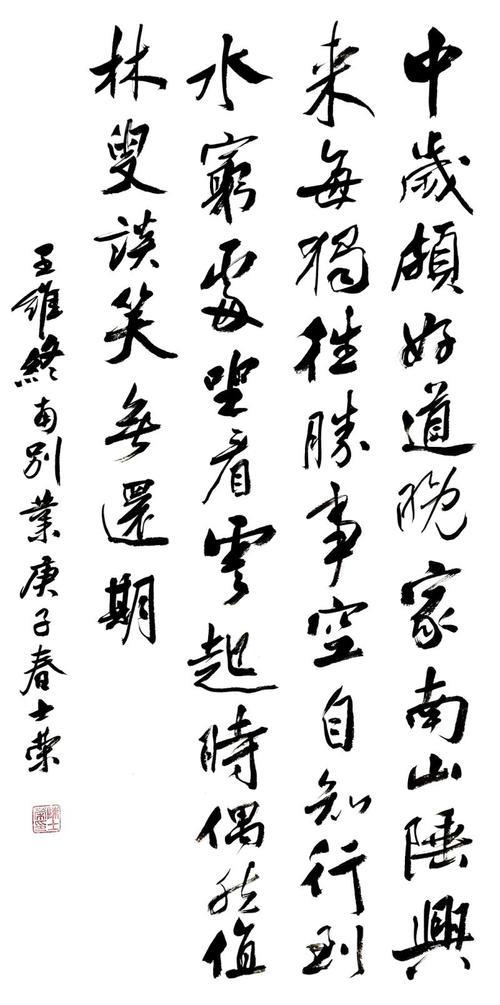 中歲頗好道晚家南山陲興
来每獨往勝事空自知行到
水窮處坐看雲起時偶然值
林叟談笑無還期
王維終南别業庚子春士榮